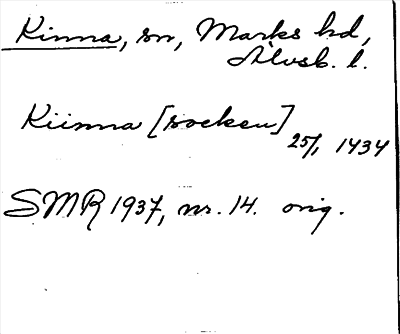 Kinna, sn, Marks hd,
Älvsb. l.
Kiinna [socken]
25/1 1434
SMR 1937, nr. 14. orig.